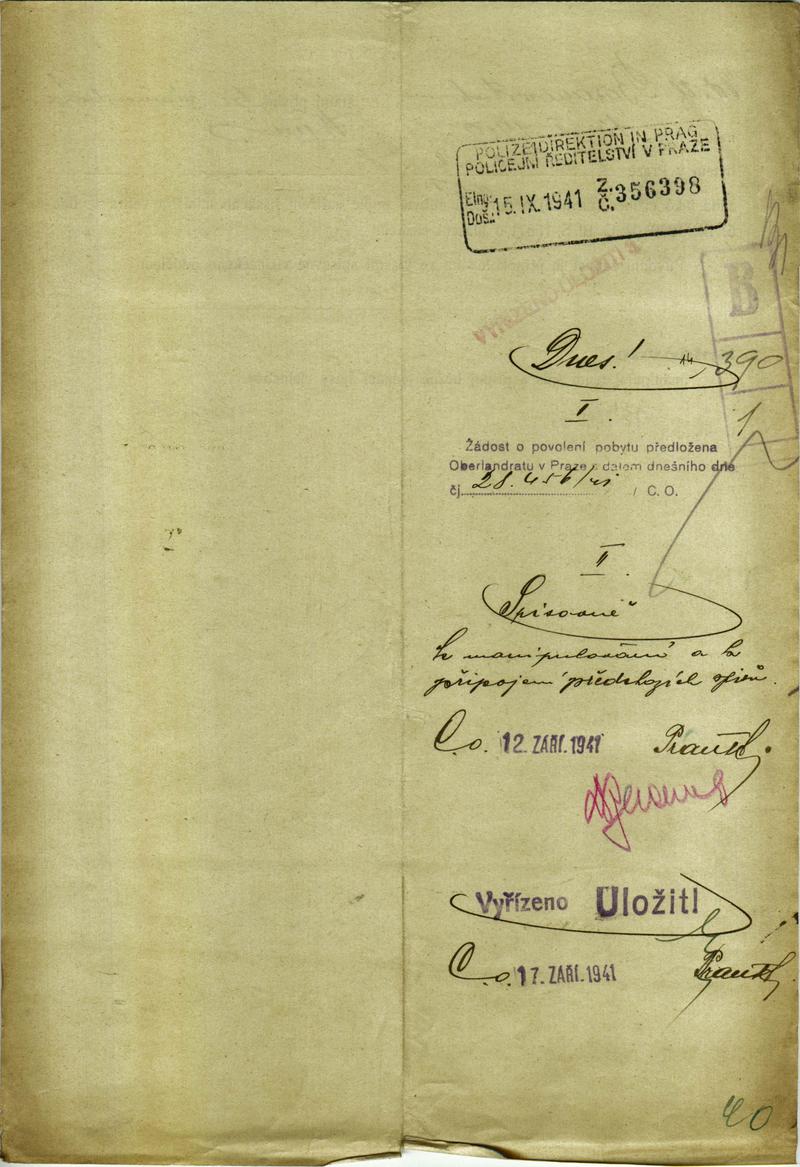 POLIZEIDIREKTION IN PRAG
POLICEJNÍ ŘEDITELSTVÍ V PRAZE
Eing. Došl. 15. IX. 1941 Z. Č. 356398
VYŘÍZENO ULOŽITI
B
Dnes! 14, 390
I.
1
Žádost o povolení pobytu předložena
Oberlandratu v Praze s datem dnešního dne
čj. 28.456/41 / C. O.
II.
Spisovně
k manipulování a k
připojení předchozích spisů.
C. o. 12. ZÁŘÍ. 1941
Vyřízeno Uložiti
C. o. 17. ZÁŘÍ. 1941
40